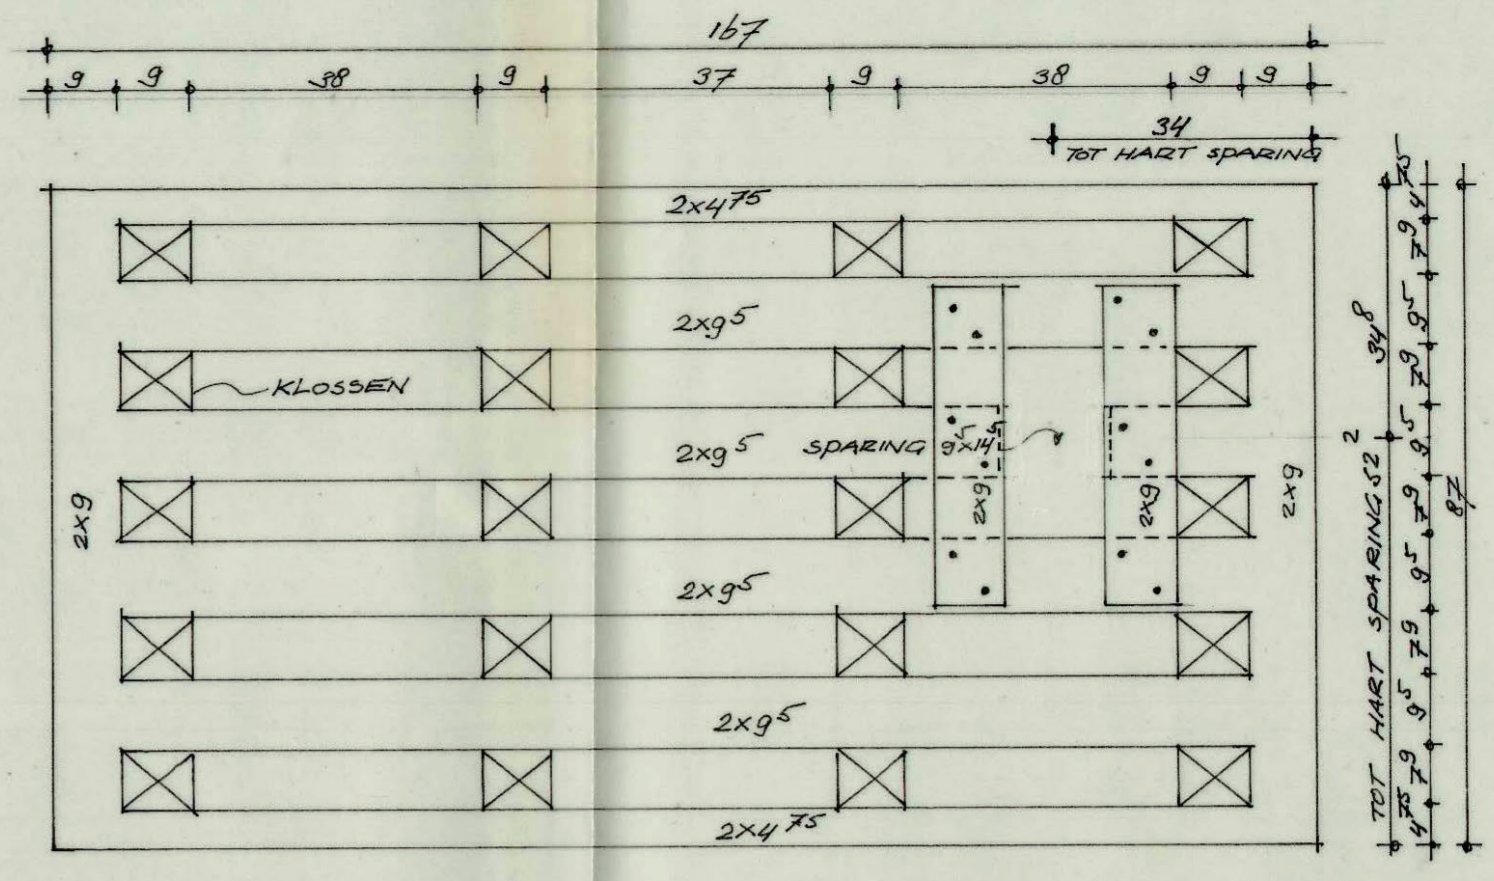 167
9 9 38 9 37 9 38 9 9
34
TOT HART SPARING
2x4⁷⁵
2x9⁵
KLOSSEN
2x9⁵
SPARING 9⁵x14⁵
2x9
2x9
2x9
2x9
2x9⁵
2x9⁵
2x4⁷⁵
34⁸
TOT HART SPARING 52²
4⁷⁵ 7⁹ 9⁵ 7⁹ 9⁵ 7⁹ 9⁵ 7⁹ 9⁵ 7⁹ 4⁷⁵
87